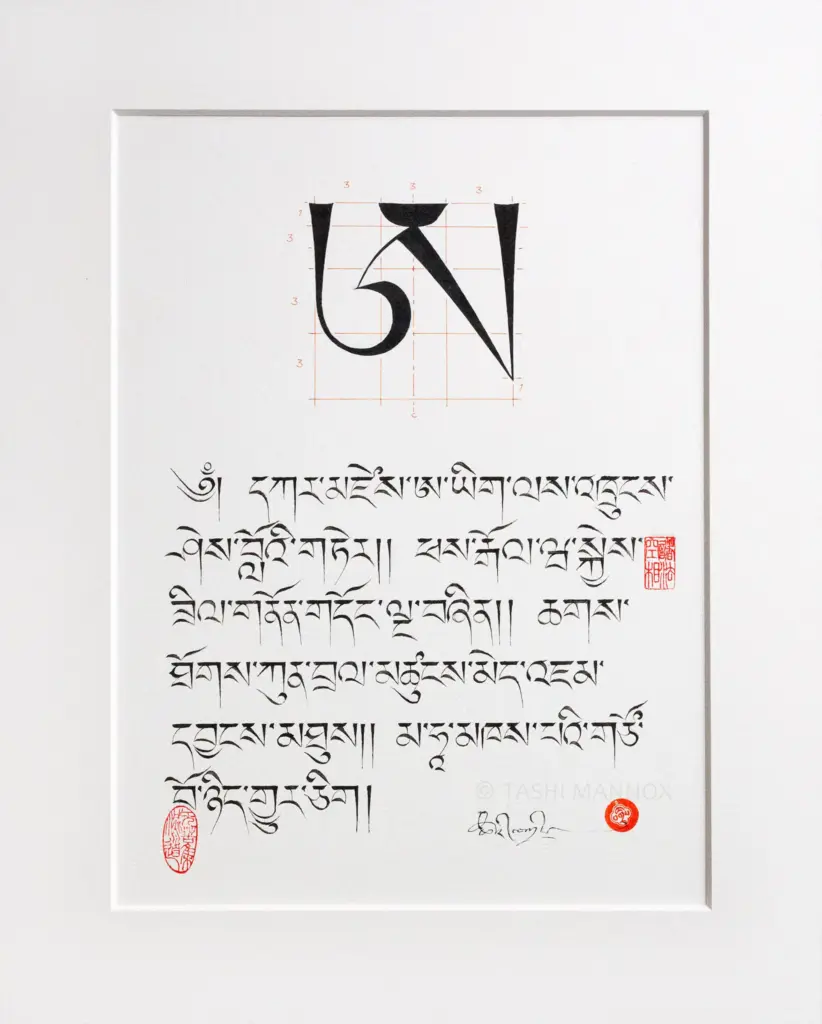 3 3 3
ཨ
1
3
3
3
1
ༀ། དཀར་མཛེས་ཨ་ཡིག་ལས་འཁྲུངས་
ཤེས་བློའི་གཏེར།། ཕས་རྒོལ་ལྟ་སྐྱེས་
ཟིལ་གནོན་གདོང་ལྔ་བཞིན།། ཆགས་
ཐོགས་ཀུན་བྲལ་མཚུངས་མེད་འཇམ་
དབྱངས་མཐུས།། མ་ཧཱ་མཁས་པའི་གཙོ་
བོ་ཉིད་གྱུར་ཅིག།
© TASHI MANNOX